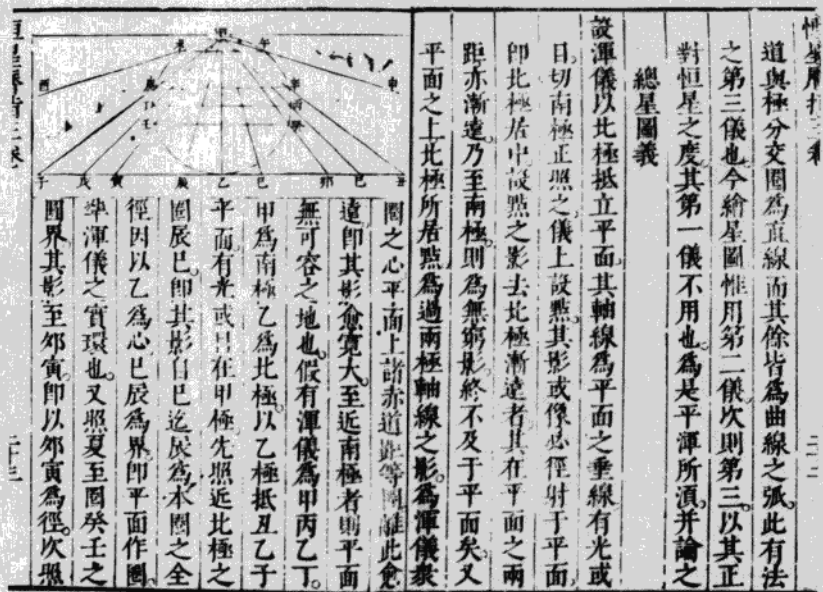 恒星曆指三卷
二十二
道與極分交圈爲直線而其餘皆爲曲線之弧此有法
之第三儀也今繪星圖惟用第二儀次則第三以其正
對恒星之度其第一儀不用也爲是平渾所須并論之
總星圖義
設渾儀以北極抵立平面其軸線爲平面之垂線有光或
目切南極正照之儀上設點其影或像必徑射于平面
卽北極居中設點之影去北極漸遠者其在平面之兩
距亦漸遠乃至南極則爲無窮影終不及于平面矣又
平面之上北極所居點爲過兩極軸線之影爲渾儀衆
圈之心平面上諸赤道距等圈離此愈
遠卽其影愈寬大至近南極者則平面
無可容之地也假有渾儀爲甲丙乙丁
甲爲南極乙爲北極以乙極抵丑乙子
平面有光或目在甲極先照近北極之
圈辰巳卽其影自巳迄辰爲本圈之全
徑因以乙爲心巳辰爲界卽平面作圈
準渾儀之實環也又照夏至圈癸壬之
圓界其影至卯寅卽以卯寅爲徑次照
甲
未
午
酉
申
庚
辛
丁
丙
壬
癸
子
戌
寅
辰
乙
巳
卯
巳
丑
恒星曆指三卷
二十三